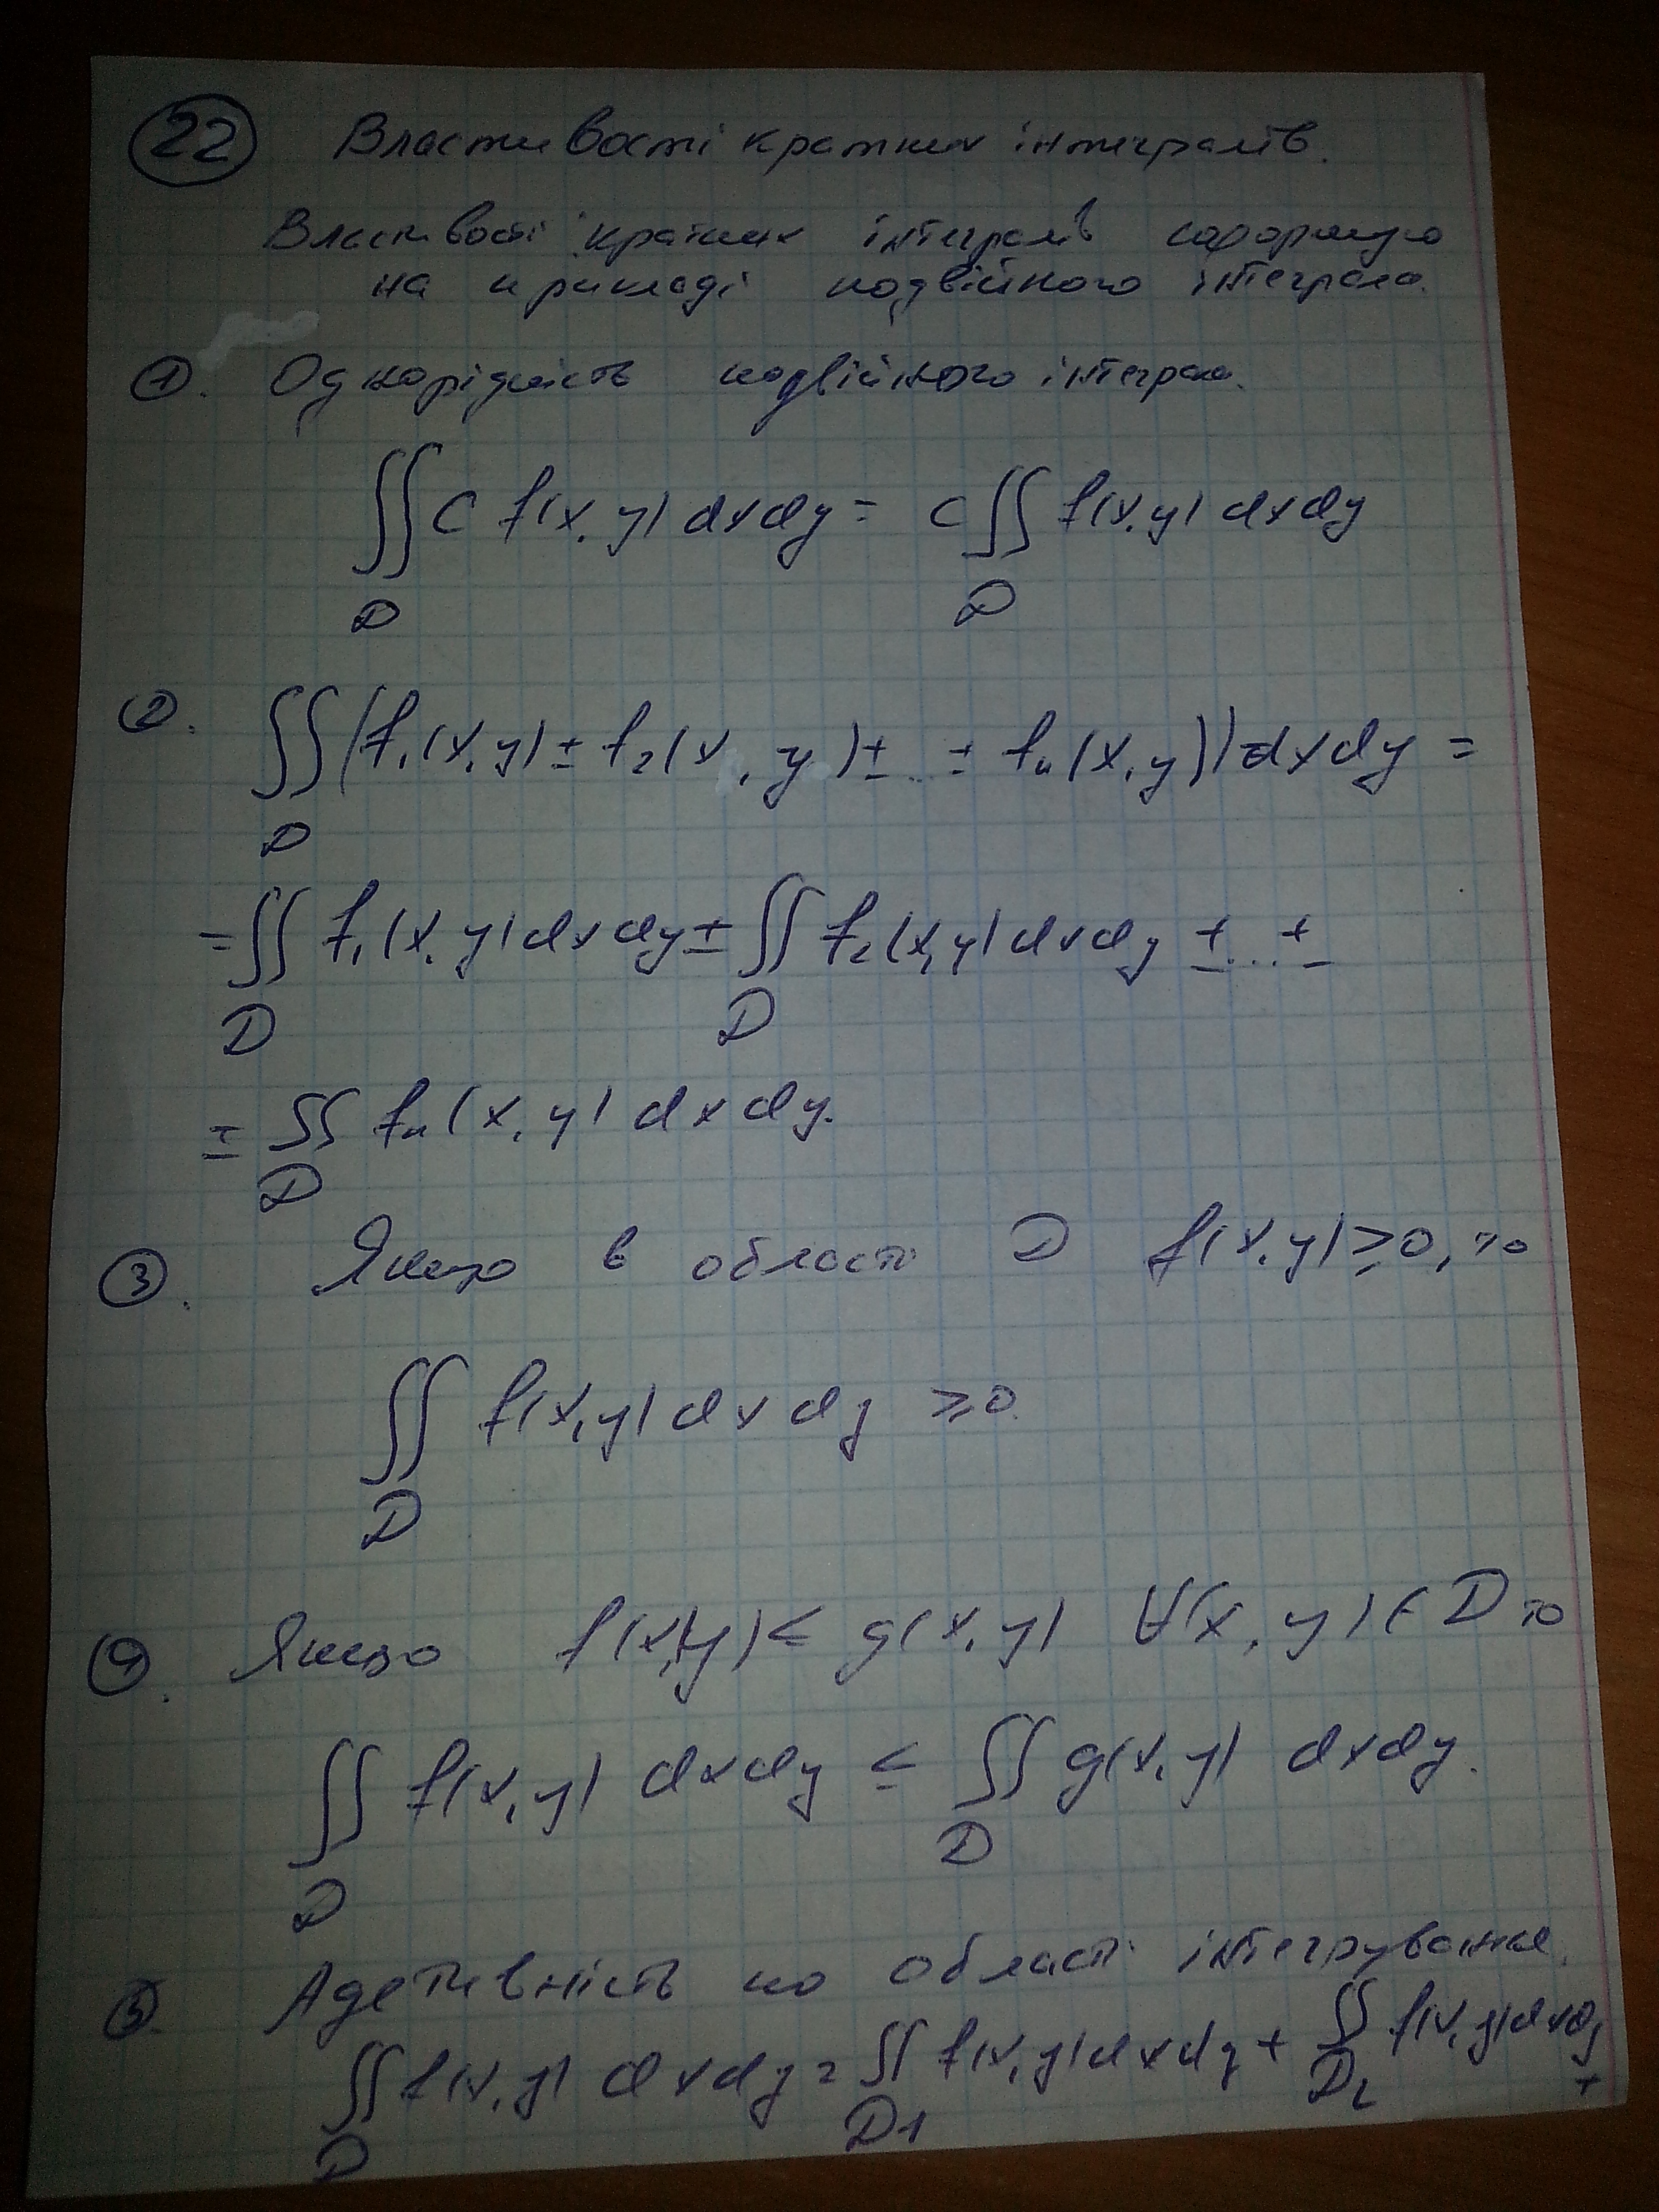 22 Властивості кратних інтегралів.
Властивості кратних інтегралів сформулю
на прикладі подвійного інтеграла.
1. Однорідність подвійного інтеграла.
∬ C f(x, y) dxdy = C ∬ f(x, y) dxdy
D D
2. ∬ (f₁(x, y) ± f₂(x, y) ± ... ± fₙ(x, y)) dxdy =
D
= ∬ f₁(x, y) dxdy ± ∬ f₂(x, y) dxdy ± ... ±
D D
± ∬ fₙ(x, y) dxdy.
D
3. Якщо в області D f(x, y) ≥ 0, то
∬ f(x, y) dxdy ≥ 0.
D
4. Якщо f(x, y) ≤ g(x, y) ∀(x, y) ∈ D то
∬ f(x, y) dxdy ≤ ∬ g(x, y) dxdy.
D D
5. Адетивність по області інтегрування.
∬ f(x, y) dxdy = ∬ f(x, y) dxdy + ∬ f(x, y) dxdy +
D D1 D2